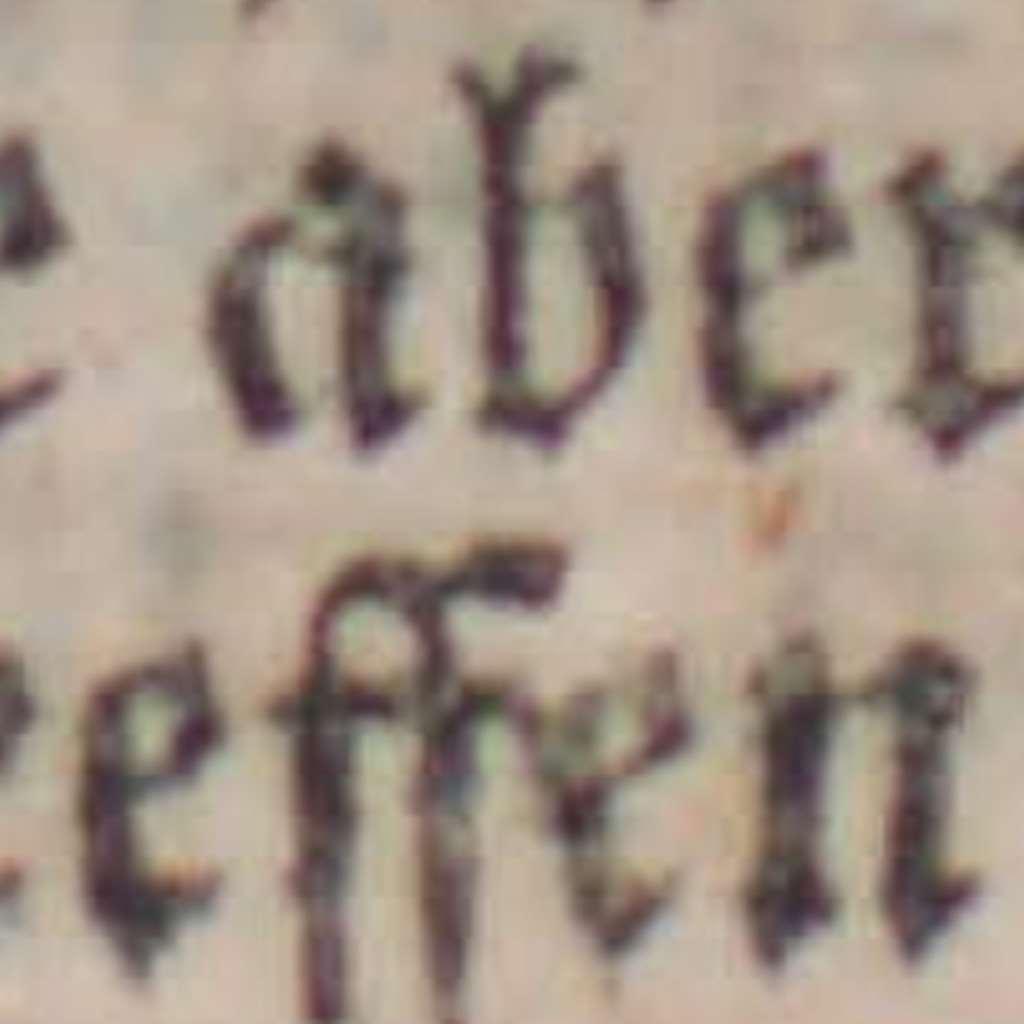 e aber
effen